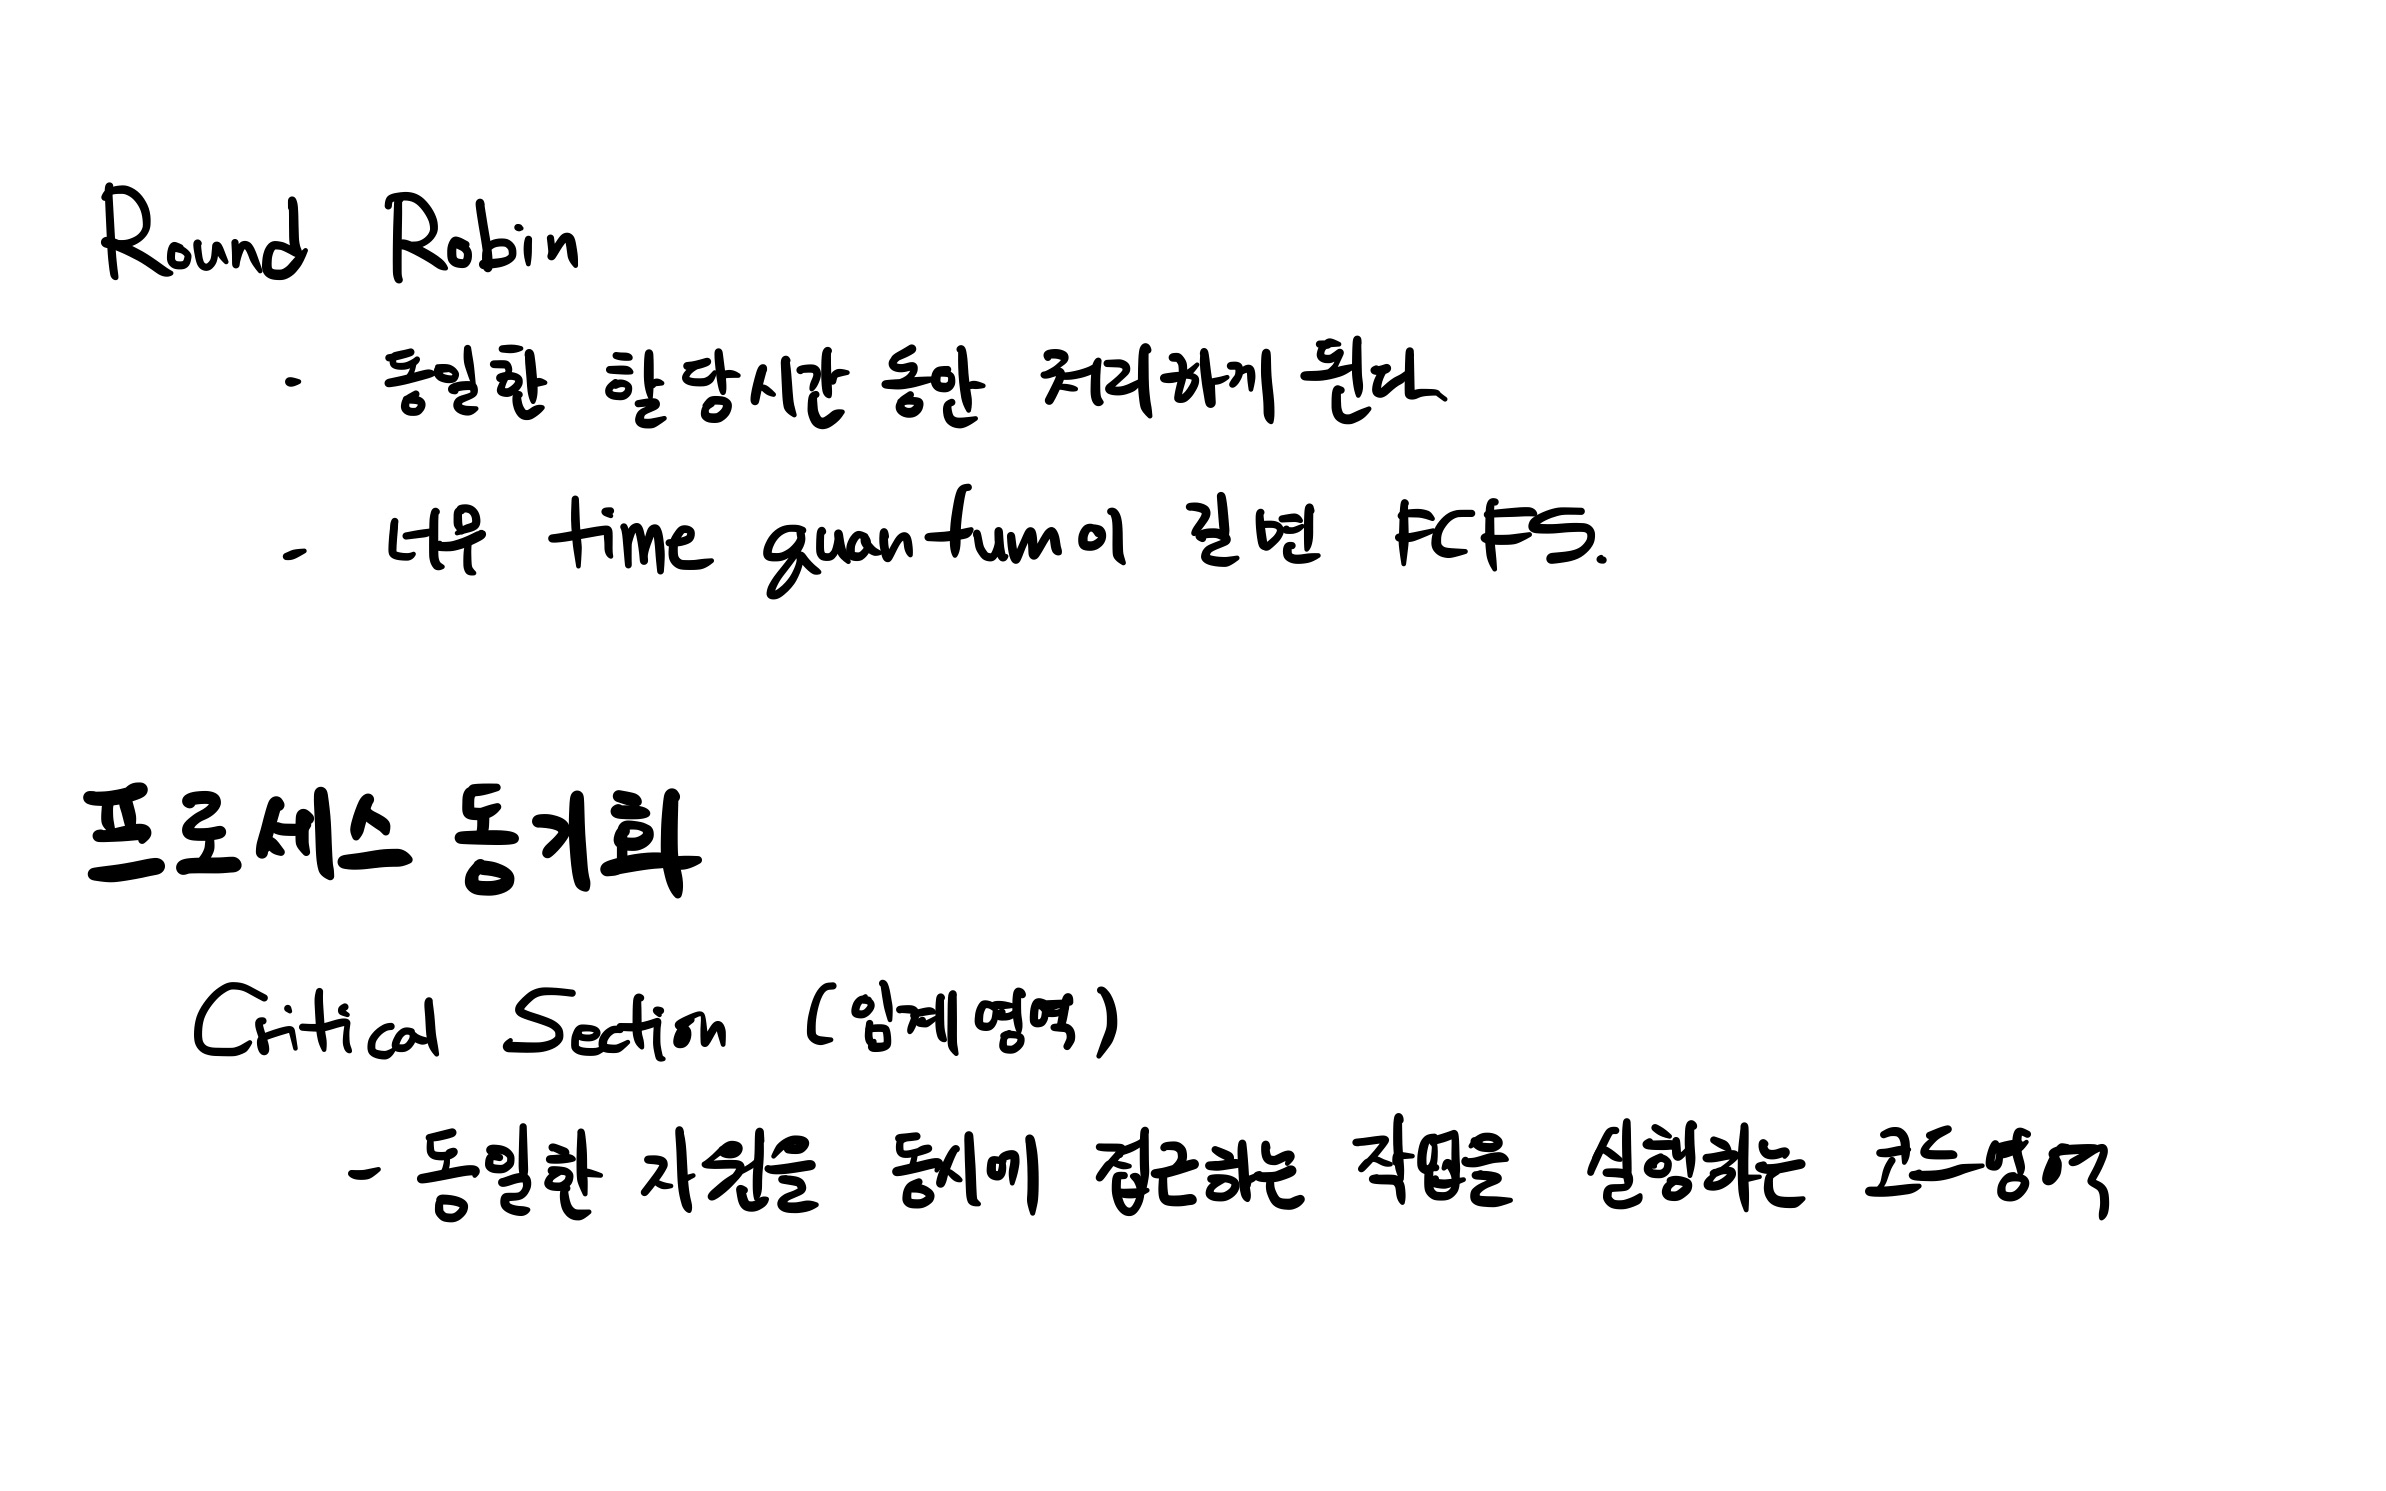 Round Robin
- 동일한 할당시간 동안 존재하게 한다.
- 너무 time quantum이 길면 FCFS.
프로세스 동기화
Citical Section (임계영역)
- 동일한 자원을 동시에 접근하는 작업을 실행하는 코드영역